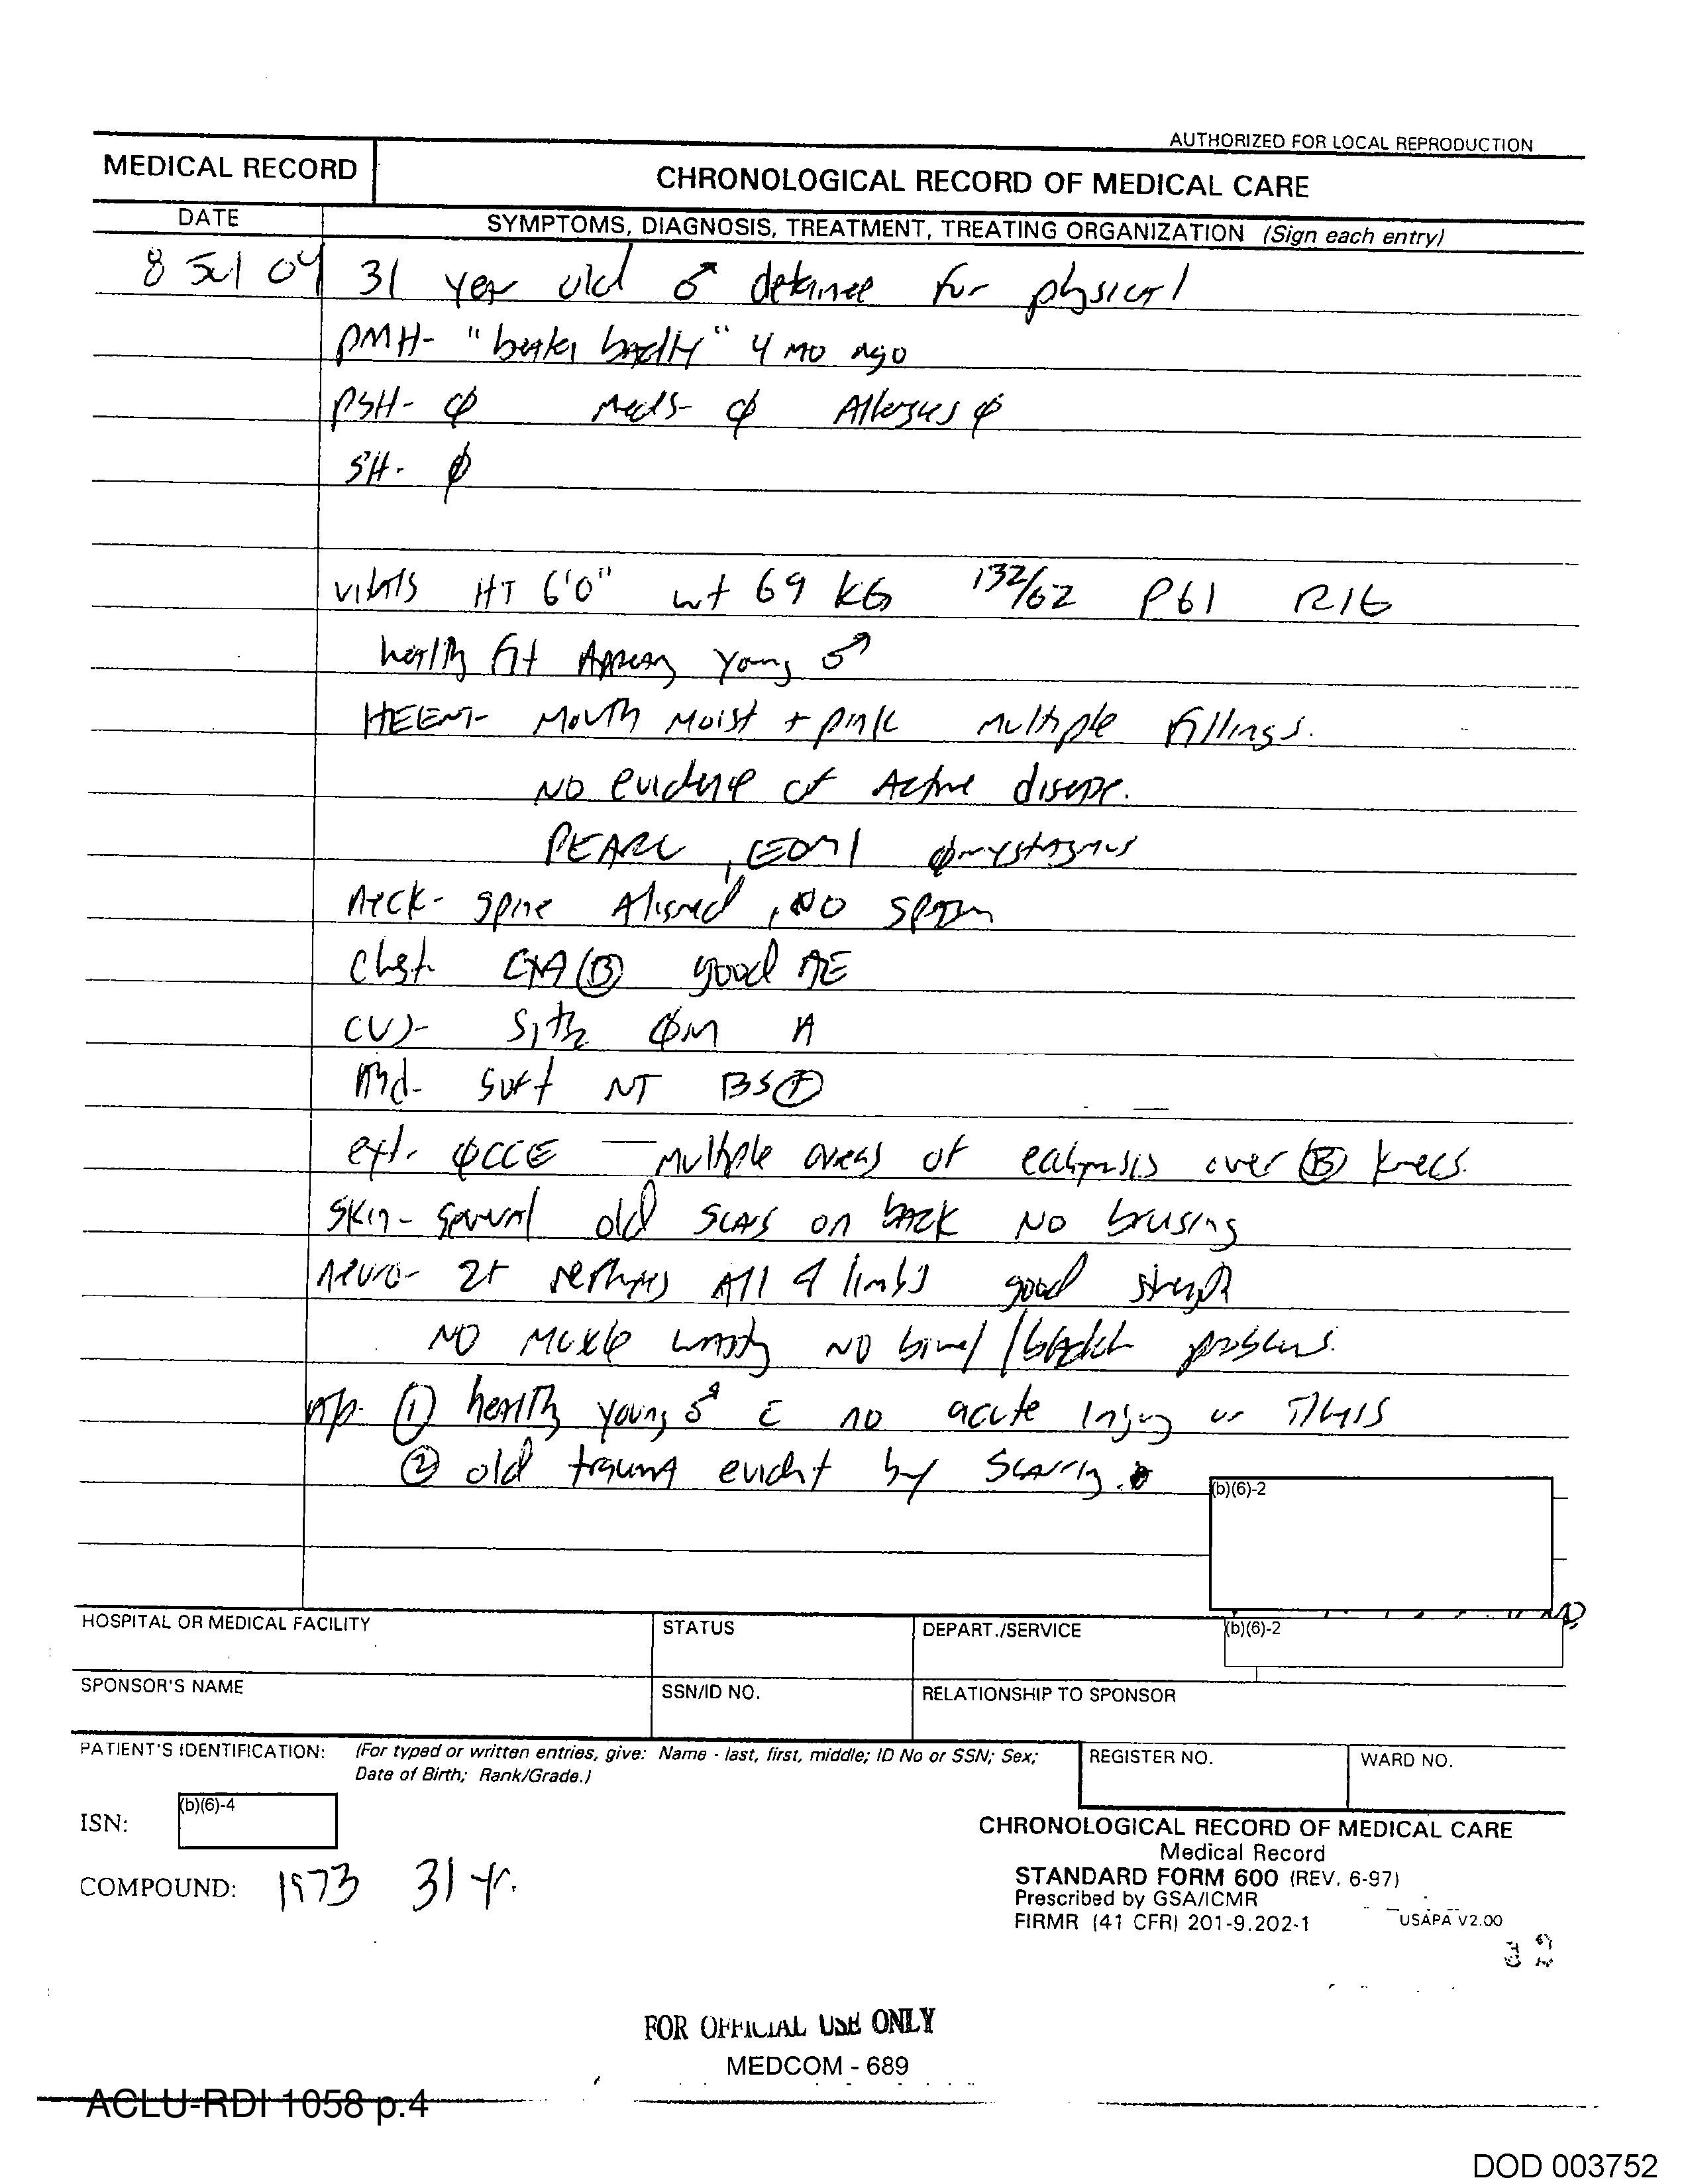 AUTHORIZED FOR LOCAL REPRODUCTION
MEDICAL RECORD
CHRONOLOGICAL RECORD OF MEDICAL CARE
DATE
SYMPTOMS, DIAGNOSIS, TREATMENT, TREATING ORGANIZATION (Sign each entry)
8 Jul 04 31 year old ♂ detainee for physical
PMH- "beaten badly" 4 mo ago
PSH- ϕ Meds- ϕ Allergies ϕ
SH- ϕ
vitals HT 6'0" wt 69 KG 132/62 P61 R16
healthy fit Appearing young ♂
HEENT- Mouth Moist + pink Multiple fillings.
NO evidence of Active disease.
PEARL, EOMI ϕ nystagmus
Neck- spine Aligned, NO spasm
Chest- (B) good AE
CVS- ϕM
Abd- soft NT BS(+)
ext. ϕCCE — Multiple areas of over (B) knees.
skin- several old scars on back NO brusing
Neuro- 2+ reflexes All 4 limbs good strength
NO Muscle wasting NO bowel/bladder problems.
A/p- (1) healthy young ♂ c̄ no acute injury or
(2) old trauma evident by scarring.
(b)(6)-2
HOSPITAL OR MEDICAL FACILITY
STATUS
DEPART./SERVICE
(b)(6)-2
SPONSOR'S NAME
SSN/ID NO.
RELATIONSHIP TO SPONSOR
PATIENT'S IDENTIFICATION: (For typed or written entries, give: Name - last, first, middle; ID No or SSN; Sex;
Date of Birth; Rank/Grade.)
REGISTER NO.
WARD NO.
ISN: (b)(6)-4
COMPOUND: 1973 31 yr.
CHRONOLOGICAL RECORD OF MEDICAL CARE
Medical Record
STANDARD FORM 600 (REV. 6-97)
Prescribed by GSA/ICMR
FIRMR (41 CFR) 201-9.202-1
USAPA V2.00
FOR OFFICIAL USE ONLY
MEDCOM - 689
ACLU-RDI 1058 p.4
DOD 003752